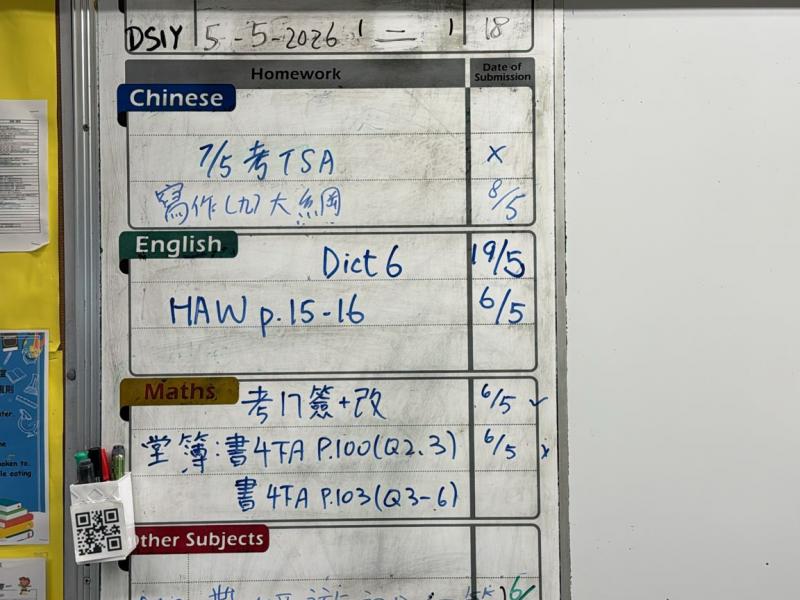 DSIY 5-5-2026 (二) 18
Homework Date of Submission
Chinese
7/5 考TSA x
寫作(九)大綱 8/5
English
Dict 6 19/5
HAW p.15-16 6/5
Maths
考17簽+改 6/5 ✓
堂簿:書4TA P.100(Q2.3) 6/5 x
書4TA P.103(Q3-6)
Other Subjects